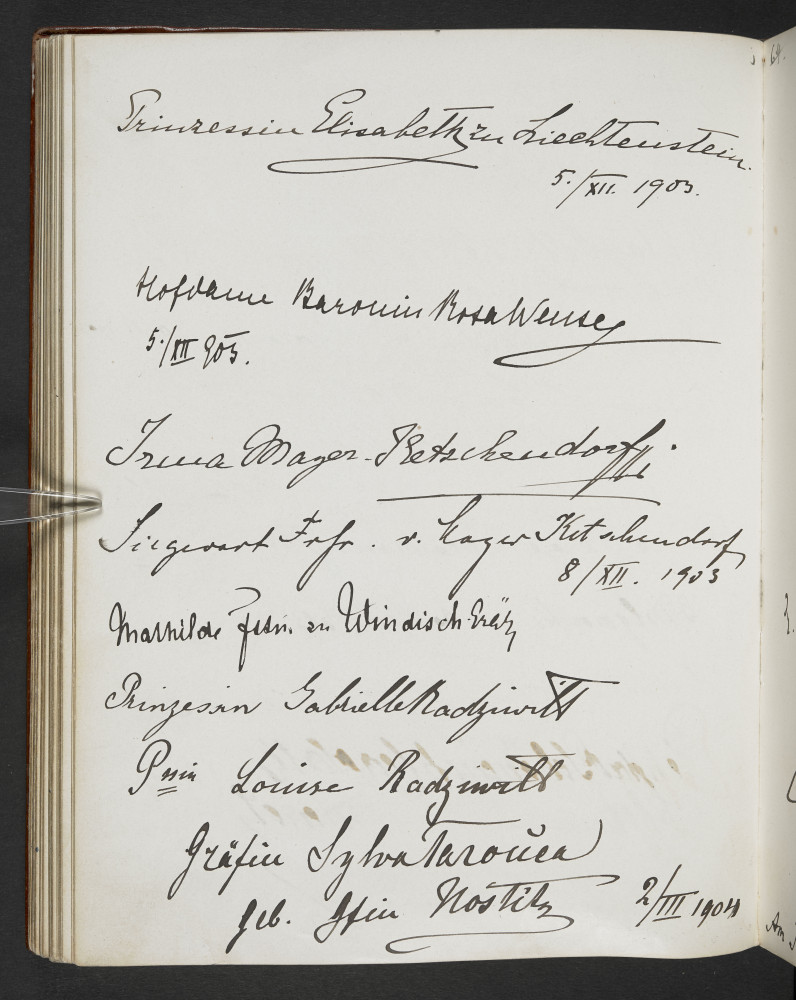 64.
Prinzessin Elisabeth zu Liechtenstein.
5./XII. 1903.
Hofdame Baronin Rosa Wense
5./XII 903.
Irma Mayer-Ketschendorff
Siegwart Frhr. v. Mayer Ketschendorf
8/XII. 1903
Mathilde Fstin. zu Windisch-Grätz
Prinzessin Gabrielle Radziwill
Pssin Louise Radziwill
Gräfin Sylva Tarouca
geb. Gfin Nostitz 2/III 1904